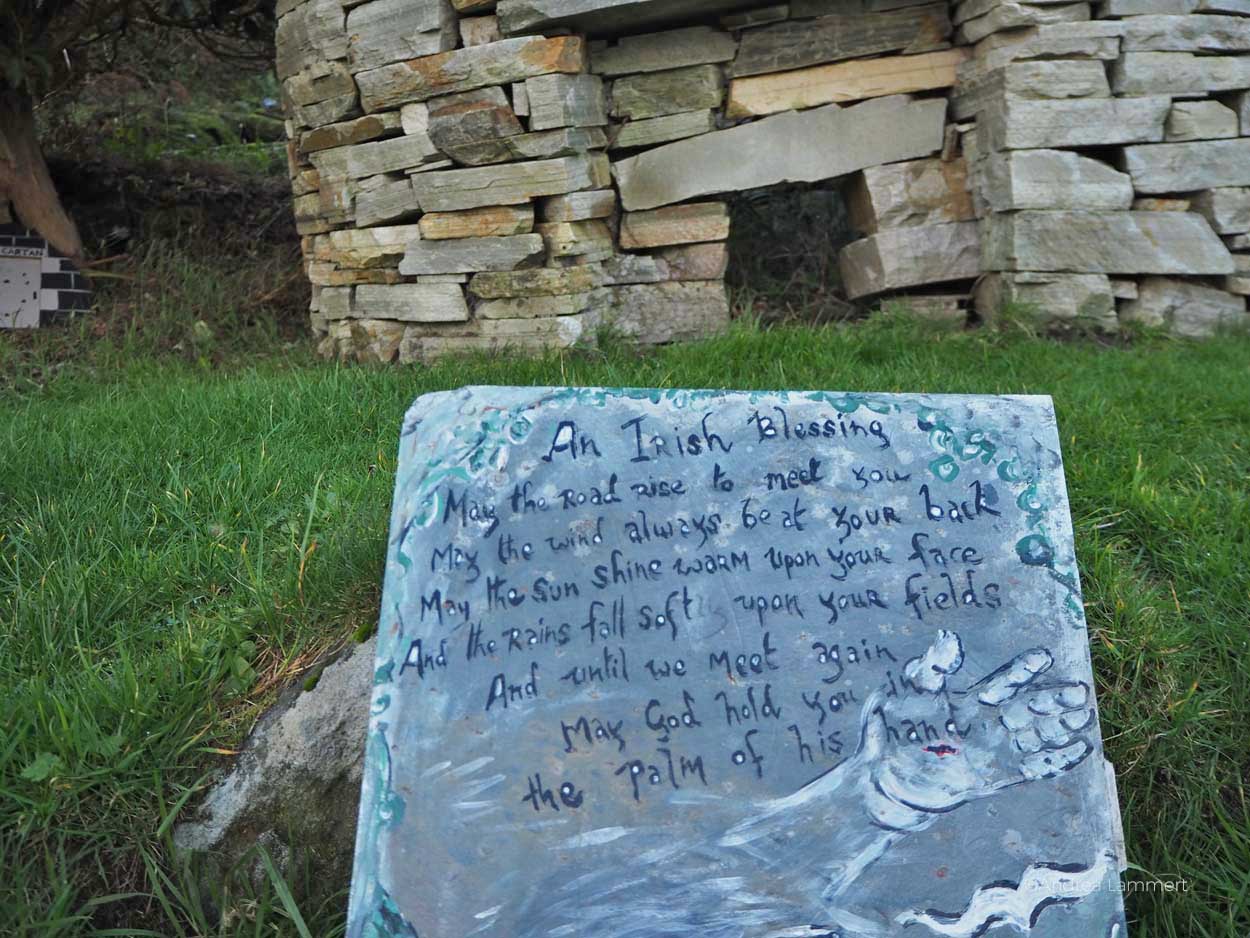 CARTAN
An Irish Blessing
May the road rise to meet you
May the wind always be at your back
May the sun shine warm upon your face
And the rains fall soft upon your fields
And until we meet again
May God hold you in
the palm of his hand
©Andrea Lammert